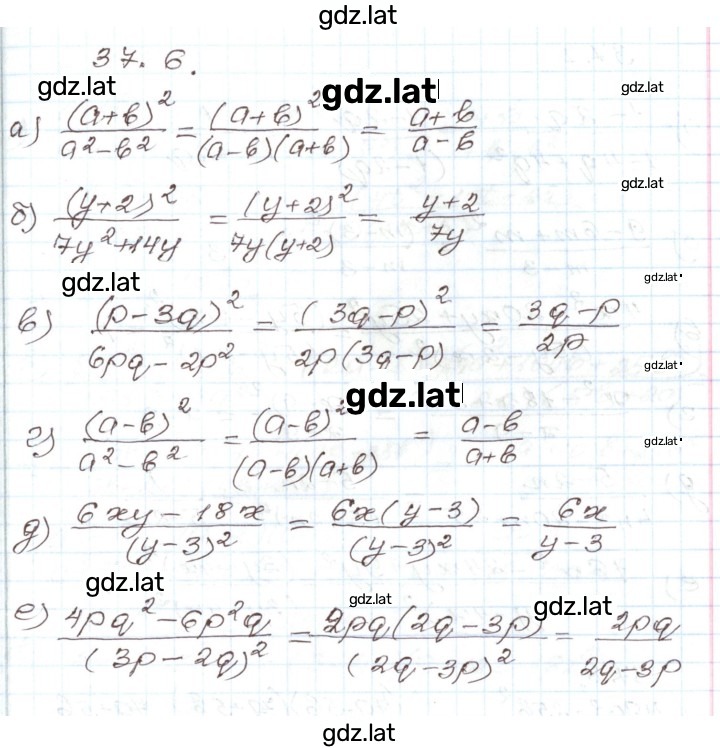 gdz.lat
37. 6.
gdz.lat gdz.lat gdz.lat
а) (a+b)²/(a²-b²) = (a+b)²/((a-b)(a+b)) = (a+b)/(a-b)
gdz.lat
б) (y+2)²/(7y²+14y) = (y+2)²/(7y(y+2)) = (y+2)/(7y)
gdz.lat gdz.lat
в) (p-3q)²/(6pq-2p²) = (3q-p)²/(2p(3q-p)) = (3q-p)/(2p)
gdz.lat
gdz.lat
г) (a-b)²/(a²-b²) = (a-b)²/((a-b)(a+b)) = (a-b)/(a+b)
gdz.lat
д) (6xy-18x)/(y-3)² = 6x(y-3)/(y-3)² = 6x/(y-3)
gdz.lat gdz.lat gdz.lat
е) (4pq²-6p²q)/(3p-2q)² = 2pq(2q-3p)/(2q-3p)² = 2pq/(2q-3p)
gdz.lat